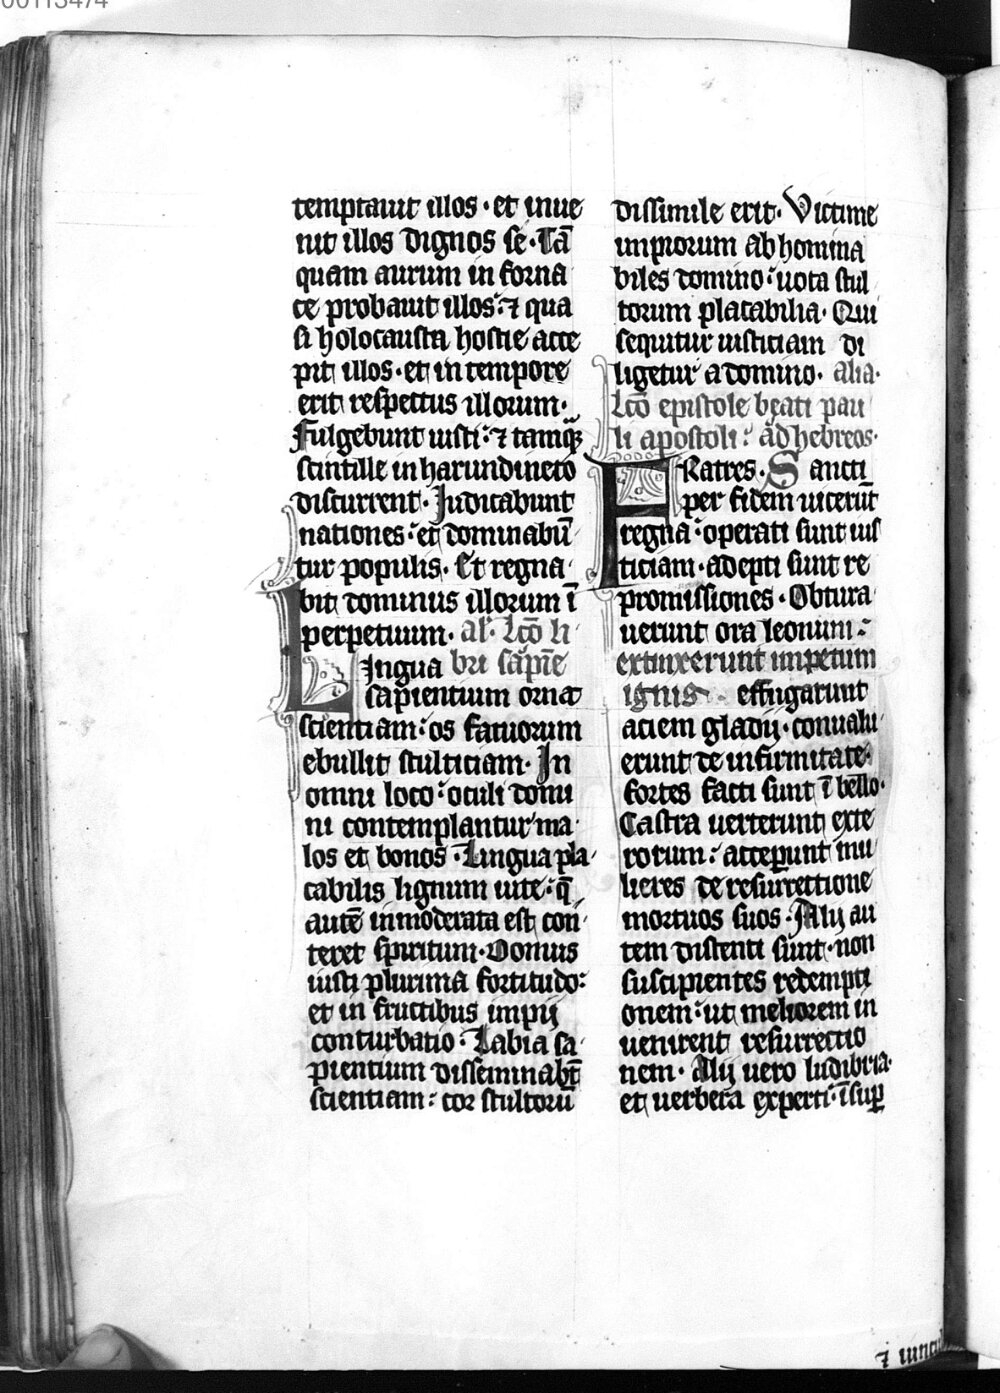 00113474
temptauit illos · et inue
nit illos dignos se · Tā
quam aurum in forna
ce probauit illos : ⁊ qua
si holocausta hostie acce
pit illos · et in tempore
erit respectus illorum ·
Fulgebunt iusti : ⁊ tamqͣ
scintille in harundineto
discurrent · Iudicabunt
nationes : et dominabū
tur populis · Et regna
bit dominus illorum ī
perpetuum · al' · Lcō li
Lingua bri sapīe
sapientium ornat
scientiam : os fatuorum
ebullit stulticiam · In
omni loco : oculi domi
ni contemplantur ma
los et bonos · Lingua pla
cabilis lignum uite : q̄
autē inmoderata est con
teret spiritum · Domus
iusti plurima fortitudo :
et in fructibus impij
conturbatio · Labia sa
pientium disseminabūt
scientiam : cor stultorū
dissimile erit · Victime
impiorum abhomina
biles domino : uota iustorum placabilia · Qui
sequitur iusticiam di
ligetur a domino · alia ·
Lcō epistole beati pau
li apostoli : ad hebreos ·
FRatres · Sancti
per fidem uicerūt
regna : operati sunt ius
ticiam · adepti sunt re
promissiones · Obtura
uerunt ora leonum :
extinxerunt impetum
ignis · effugarunt
aciem gladij · conualu
erunt de infirmitate ·
fortes facti sunt ī bello ·
Castra uerterunt exte
rorum : acceperunt mu
lieres de resurrectione
mortuos suos · Alij au
tem distenti sunt · non
suscipientes redempti
onem : ut meliorem in
uenirent resurrectio
nem · Alij uero ludibria
et uerbera experti : īsuꝑ
⁊ uincul